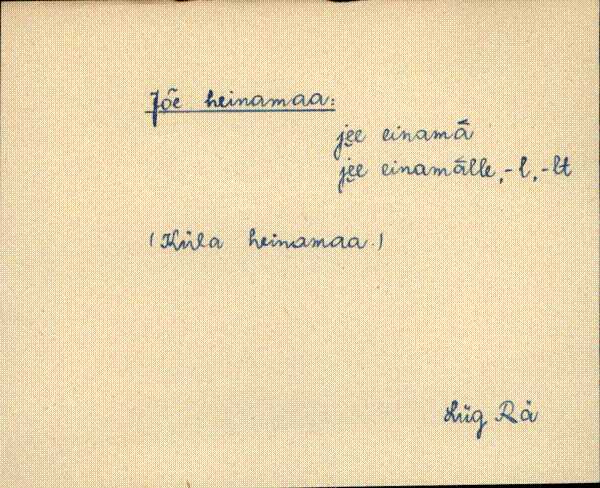 Jõe heinamaa:
jẹe einamā
jẹe einamālle, -l, -lt
(Küla heinamaa.)
Lüg Rä